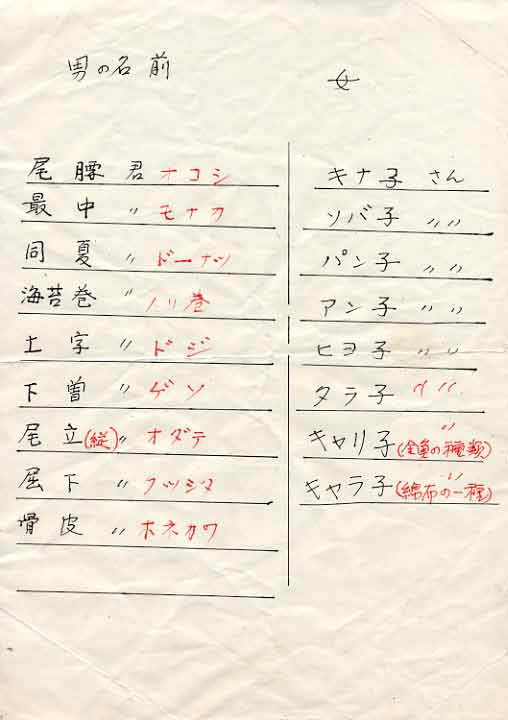 男の名前
女
尾腰君 オコシ
最中〃 モナカ
同夏〃 ドーナツ
海苔巻〃 ノリ巻
土字〃 ドジ
下曽〃 ゲソ
尾立(縦)〃 オダテ
屈下〃 クツシタ
骨皮〃 ホネカワ
キナ子 さん
ソバ子 〃〃
パン子 〃〃
アン子 〃〃
ヒヨ子 〃〃
タラ子 〃〃
キャリ子 〃 (金魚の種類)
キャラ子 〃 (綿布の一種)